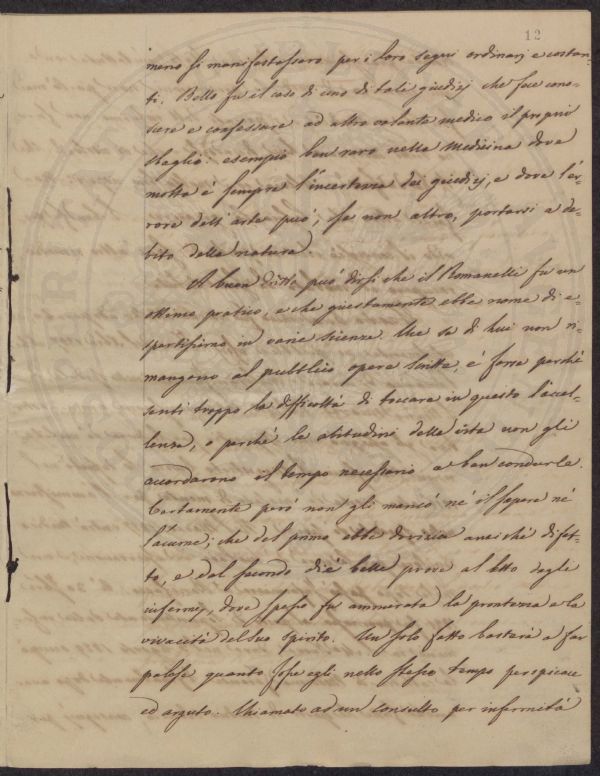 12
meno si manifestassero per i loro segni ordinarj e costan=
ti. Bello fu il caso di uno di tali giudizj che fece cono=
scere e confessare ad altro valente medico il proprio
sbaglio: esempio ben raro nella Medicina dove
molta è sempre l'incertezza dei giudizj, e dove l'er=
rore dell'arte può, se non altro, portarsi a de=
bito della natura.
A buon dritto può dirsi che il Romanelli fu un
ottimo pratico, e che giustamente ebbe nome di e=
spertissimo in varie scienze. Che se di lui non ri=
mangono al pubblico opere scritte, è forse perchè
sentì troppo la difficoltà di toccare in questo l'eccel=
lenza, o perchè le abitudini della vita non gli
accordarono il tempo necessario a ben condurle.
Certamente però non gli mancò nè il sapere nè
l'acume; che del primo ebbe dovizia anzichè difet=
to, e del secondo diè belle prove al letto degli
infermj, dove spesso fu ammirata la prontezza e la
vivacità del suo spirito. Un solo fatto basterà a far
palese quanto fosse egli nello stesso tempo perspicace
ed arguto. Chiamato ad un consulto per infermità